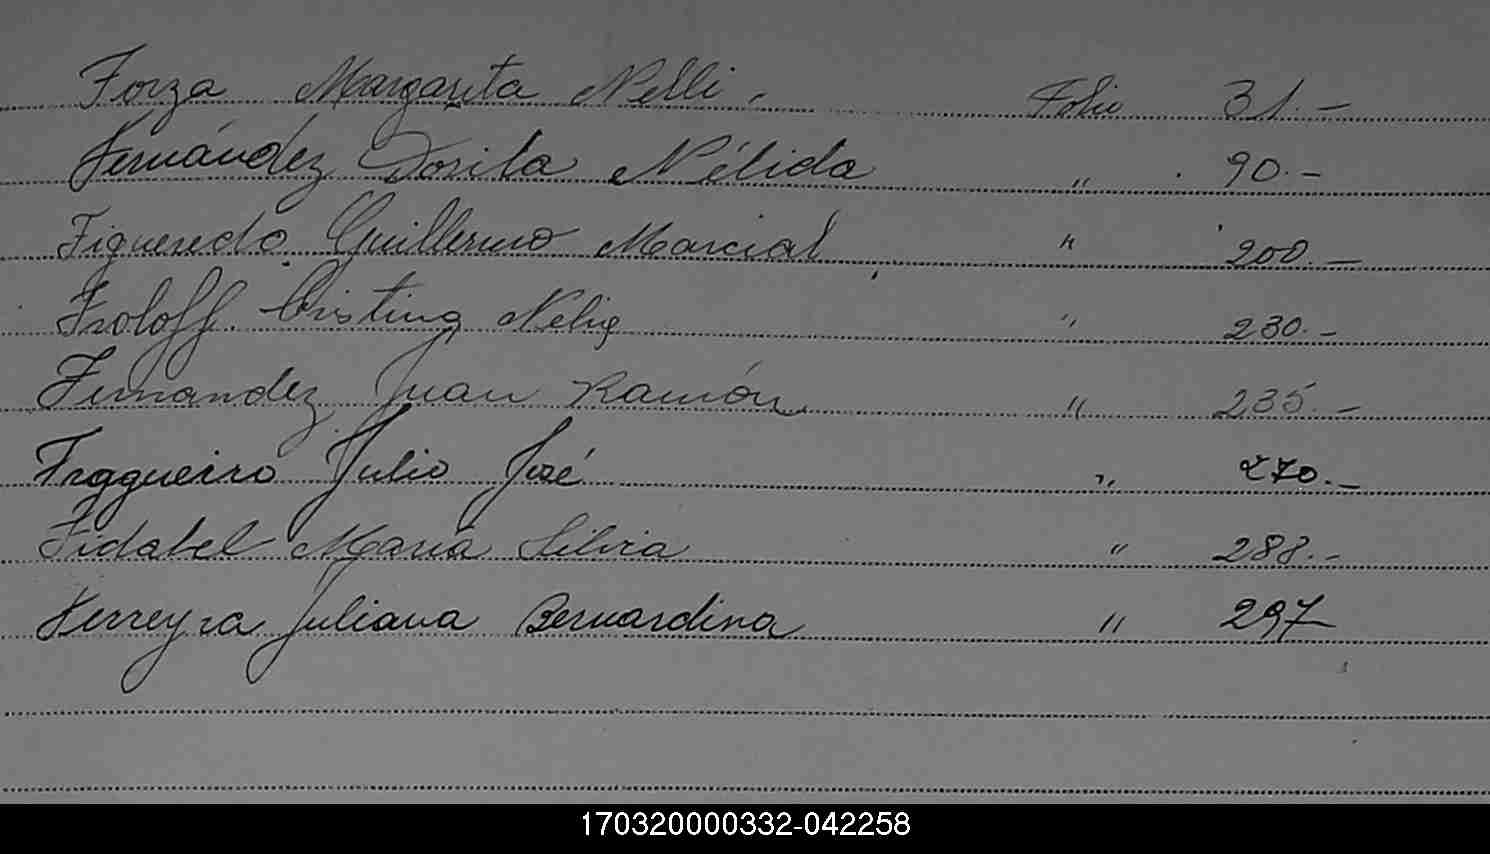 Forza Margarita Nelli. Folio 31.-
Fernández Dorila Nélida " 90.-
Figueredo Guillermo Marcial " 200.-
Froloff Cristina Nelie " 230.-
Fernandez Juan Ramón " 235.-
Fragueiro Julio José " 270.-
Fidabel María Silvia " 288.-
Ferreyra Juliana Bernardina " 297
170320000332-042258